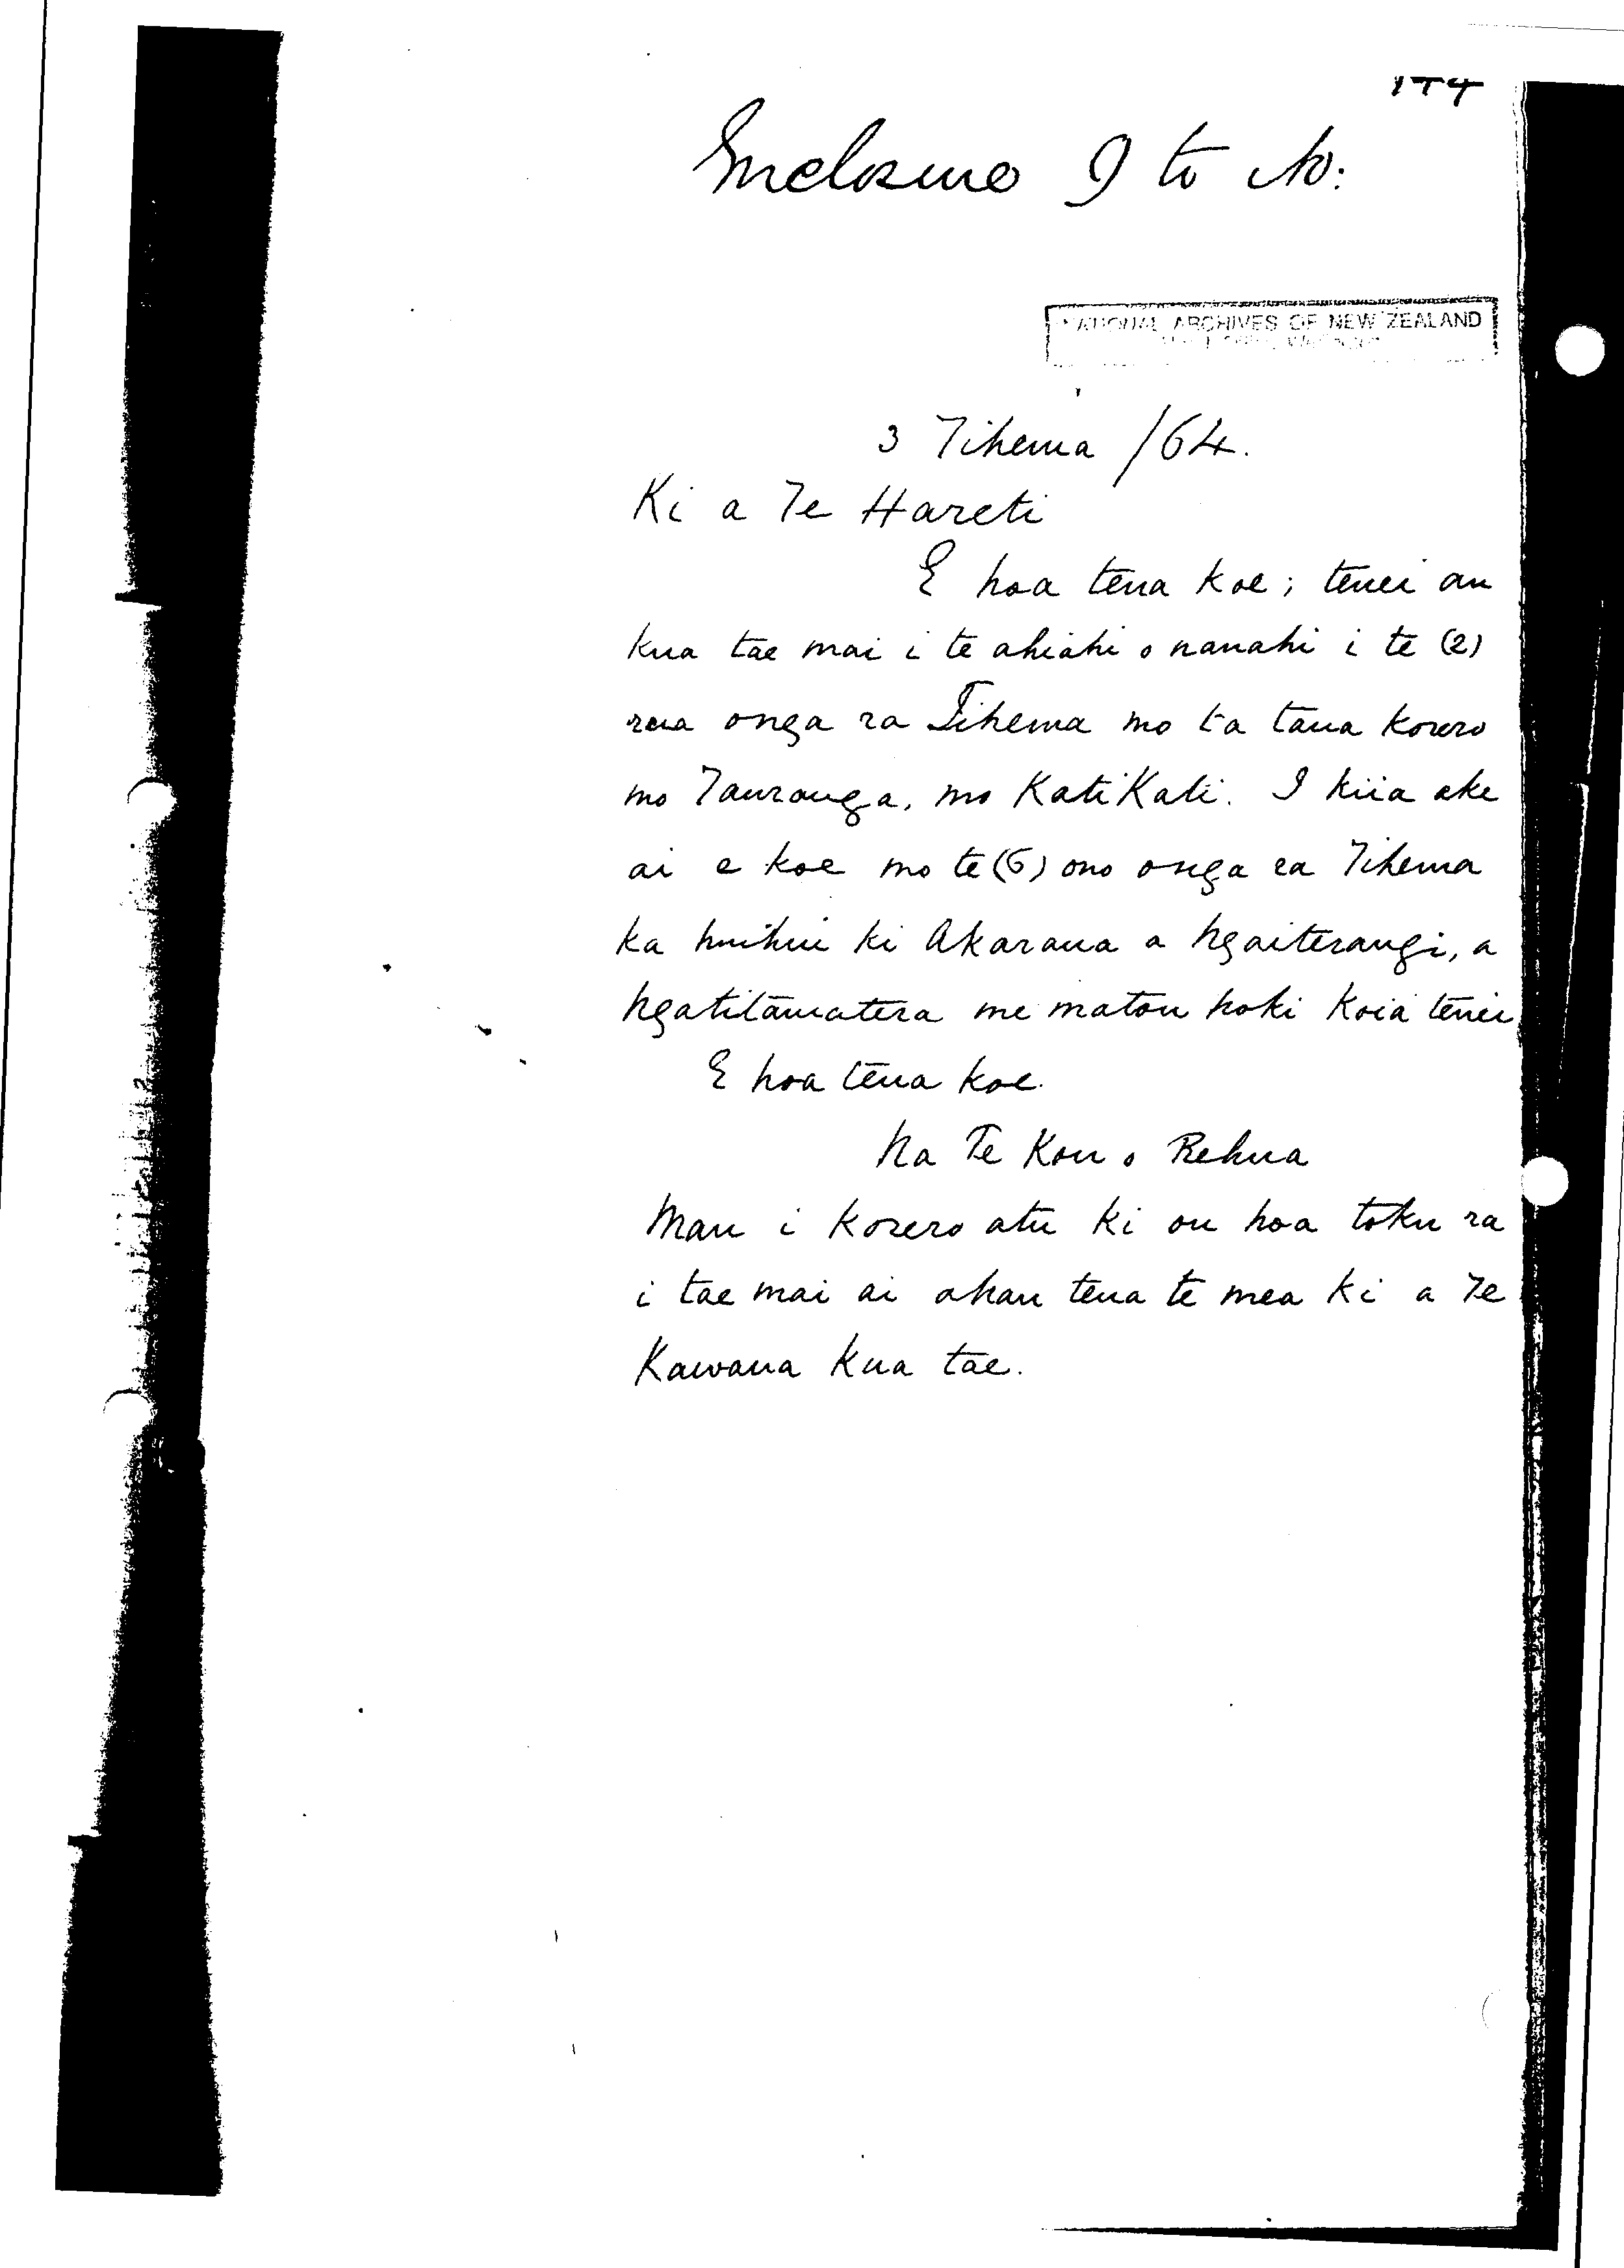 Enclosure 9 to No:
NATIONAL ARCHIVES OF NEW ZEALAND
3 Tihema /64.
Ki a Te Hareti
E hoa tena koe; tenei au
kua tae mai i te ahiahi o nanahi i te (2)
rua onga ra Tihema mo ta taua korero
mo Tauranga, mo KatiKati. I kiia ake
ai e koe mo te (6) ono onga ra Tihema
ka huihui ki Akarana a Ngaiterangi, a
Ngatitamatera me matou hoki koia tenei
E hoa tena koe.
Na Te Kou o Rehua
Mau i korero atu ki ou hoa toku ra
i tae mai ai ahau tena te mea ki a Te
Kawana kua tae.